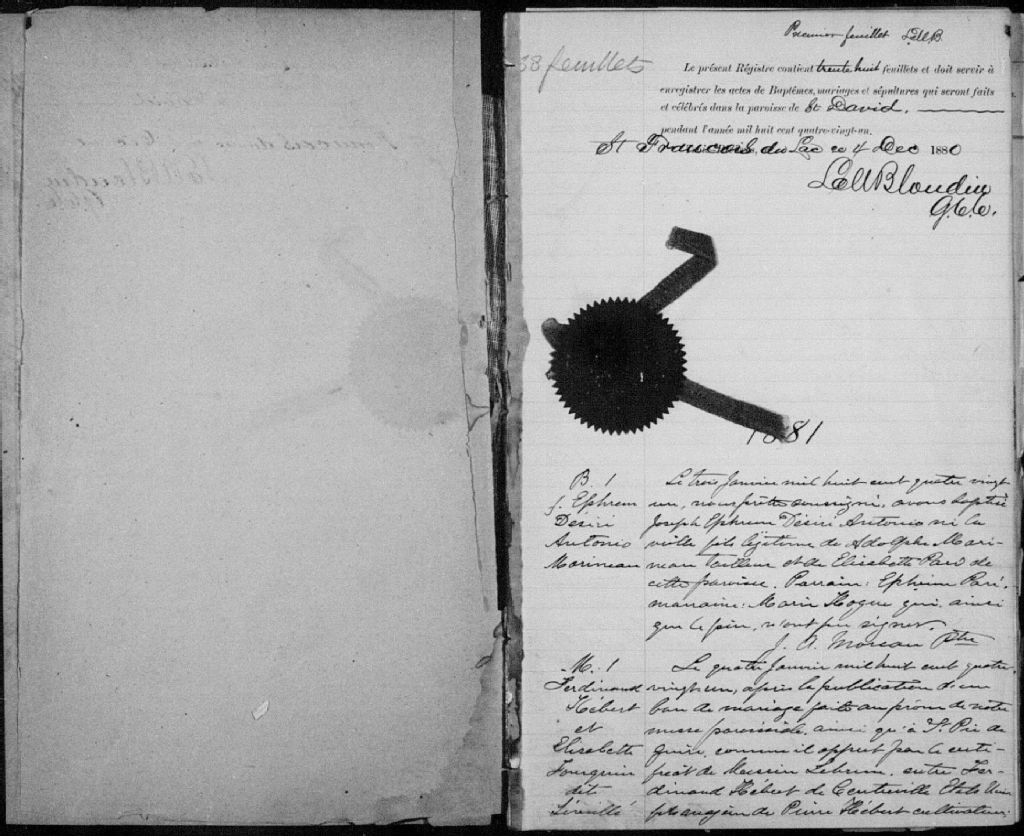 Premier feuillet L.ellB.
38 feuillets
Le présent Régistre contient trente huit feuillets et doit servir à
enregistrer les actes de Baptêmes, mariages et sépultures qui seront faits
et célébrés dans la paroisse de St David.
pendant l'année mil huit cent quatre-vingt-un.
St Francois du Lac ce 4 Dec 1880
Blondin
G.C.C.
1881
B. 1
J. Ephrem
Désiré
Antonio
Morineau
Le trois Janvier mil huit cent quatre vingt
un, nous prêtre soussigné, avons baptisé
Joseph Ephrem Désiré Antonio né la
veille fils légitime de Adolphe Mori-
neau tailleur et de Elisabeth Paré de
cette paroisse. Parrain: Ephrem Paré,
marraine: Marie Hogue qui, ainsi
que le père, n'ont pu signer.
J. A. Moreau Ptre
M. 1
Ferdinand
Hébert
et
Elisabeth
Fourquin
dit
Léveillé
Le quatre Janvier mil huit cent quatre
vingt un, après la publication d'un
ban de mariage faite au prône de notre
messe paroissiale, ainsi qu'à St. Pie de
Guire, comme il appert par le certi-
ficat de Messire Lebrun, entre Fer-
dinand Hébert de Centreville Etats Unis
fils majeur de Pierre Hébert cultivateur